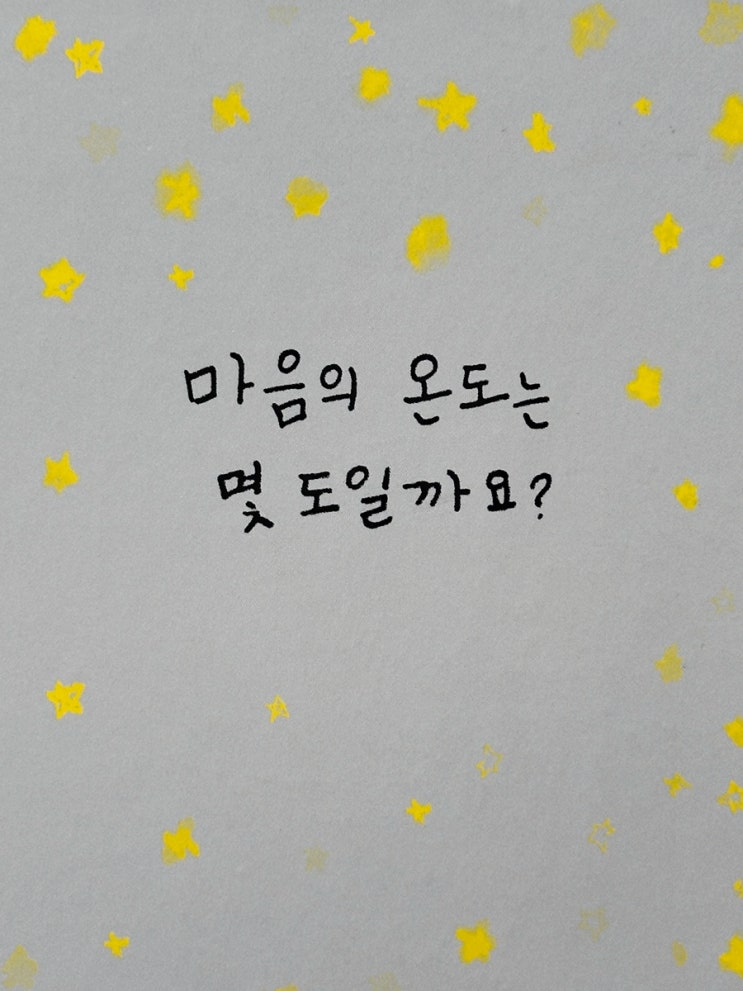 마음의 온도는
몇 도일까요?